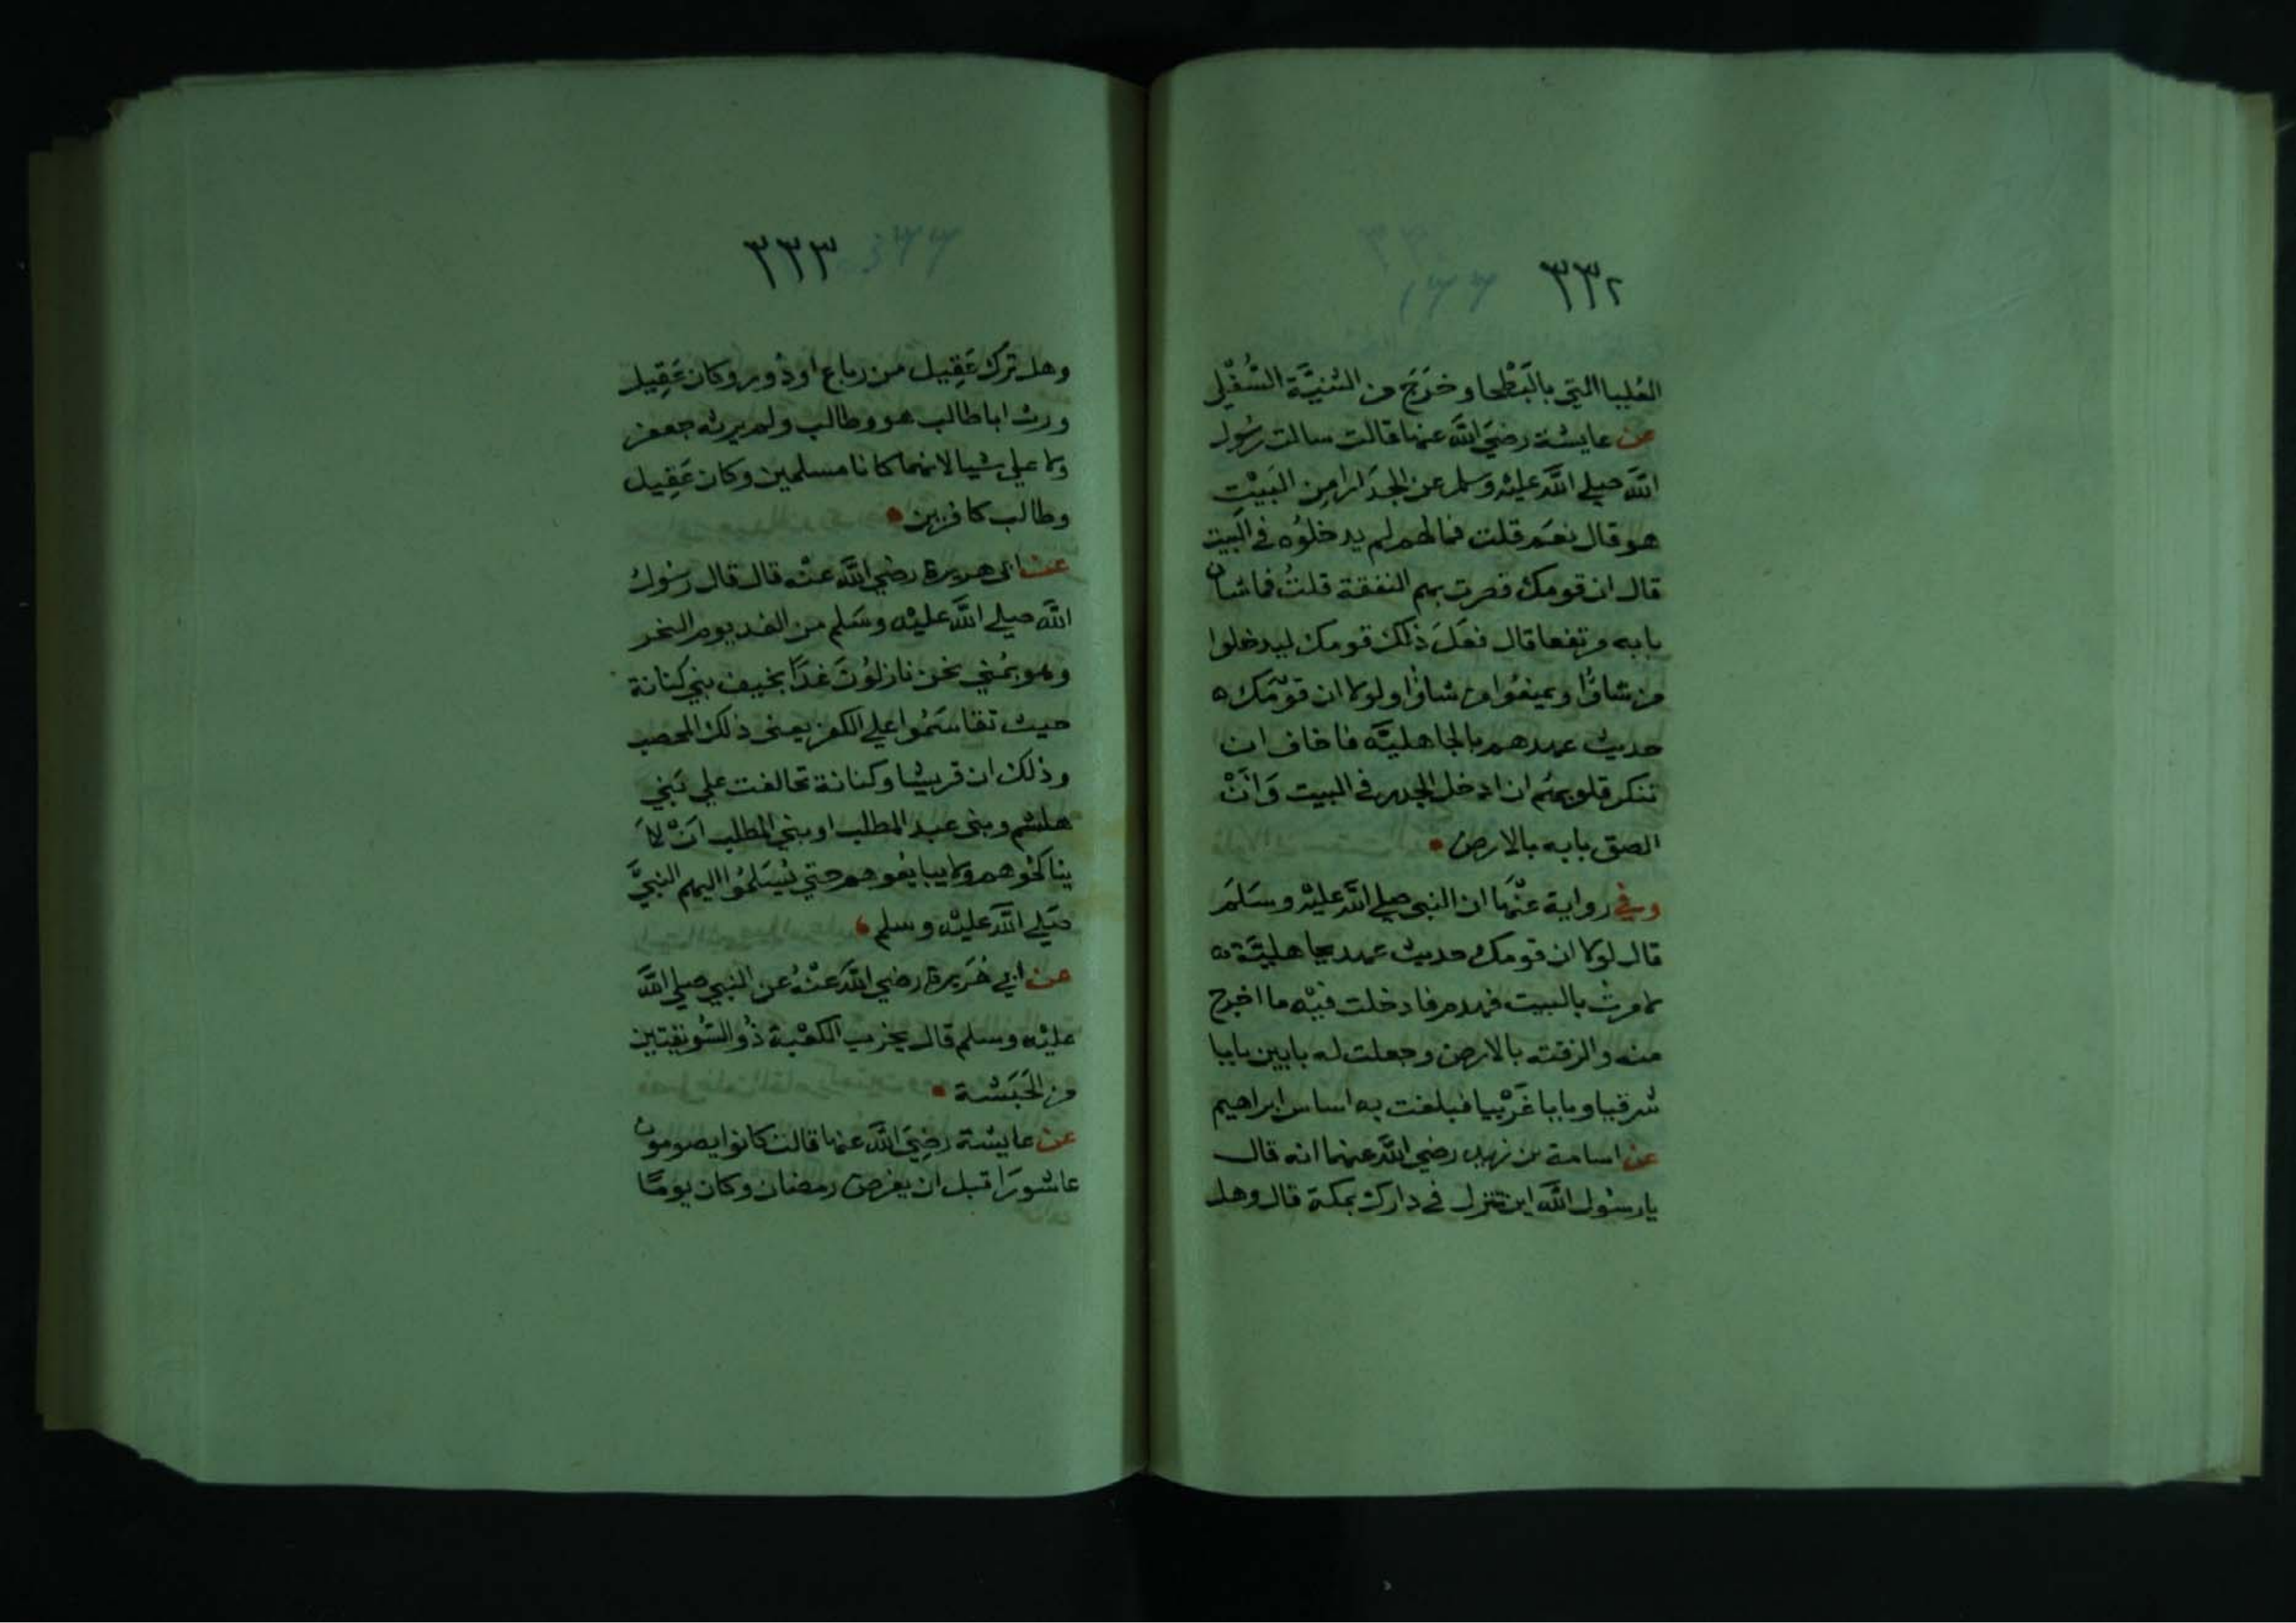 ٣٣٢
العُليا التي بالبَطحا وخَرَجَ من الثنيَّة السُّفلي
عن عايشة رضيَ اللَّه عنها قالت سالت رسُول
اللَّه صلي اللَّه عليه وسلم عن الجدَار امِن البَيْتِ
هو قال نعَم قلت فما لهم لم يدخلُوه في البَيت
قال ان قومك قصرت بهم النفقة قلتُ فما شان
بابه مرتفعا قال فعَلَ ذلك قومك ليدخلوا
من شاوُا ويمنعُوا من شاوُا ولولا ان قومَك
حديث عهدهم بالجاهليَّه فاخاف ان
تنكر قلوبهُم ان ادخل الجدر في البيت وَانْ
الصق بابه بالارض
وفي رواية عنْهَا ان النبي صلي اللَّه عليْه وسَلمَ
قال لولا ان قومك حديث عهد بجاهليَّة
لامرتُ بالبيت فهدم فادخلت فيْه ما اخرج
منه والزقته بالارض وجعلت له بابين بابا
شرقيا وبابا غَرْبيا فبلغت به اساس ابراهيم
عن اسامة بن زيد رضي اللَّه عنهما انه قال
يارسُول اللَّه اين تنزل في دارك بمكة قال وهل
٣٣٣
وهل ترَك عَقِيل من رباع او دُور وكان عَقِيل
ورث ابا طالب هو وطالب ولم يرثه جعفر
ولا علي شيا لانهما كانا مسلمين وكان عَقِيل
وطالب كافرين
عن ابي هريرة رضي اللَّه عنْه قال قال رسُول
اللَّه صلي اللَّه عليْه وسَلم من الغد يوم النحر
وهو بمُني نحن نازلوُن غدًا بخيف بني كنانة
حيث تقاسَمُوا علي الكفر يعني ذلك المحصب
وذلك ان قريشا وكنانة تحالفت علي بَني
هاشم وبني عبد المطلب او بني المطلب انْ لاَ
يناكحُوهم ولا يبايعُوهم حتي يُسَلمُوا اليهم النبيَّ
صَلي اللَّه عليْه وسلم
عن ابي هُريرة رضي اللَّه عنْهُ عن النبي صلي اللَّه
عليْه وسلم قال يخرب الكعْبة ذُو السُّويقتين
من الحَبَشة
عن عايشة رضِيَ اللَّه عنها قالت كانوا يصومون
عاشورَا قبل ان يفرض رمضان وكان يومًا